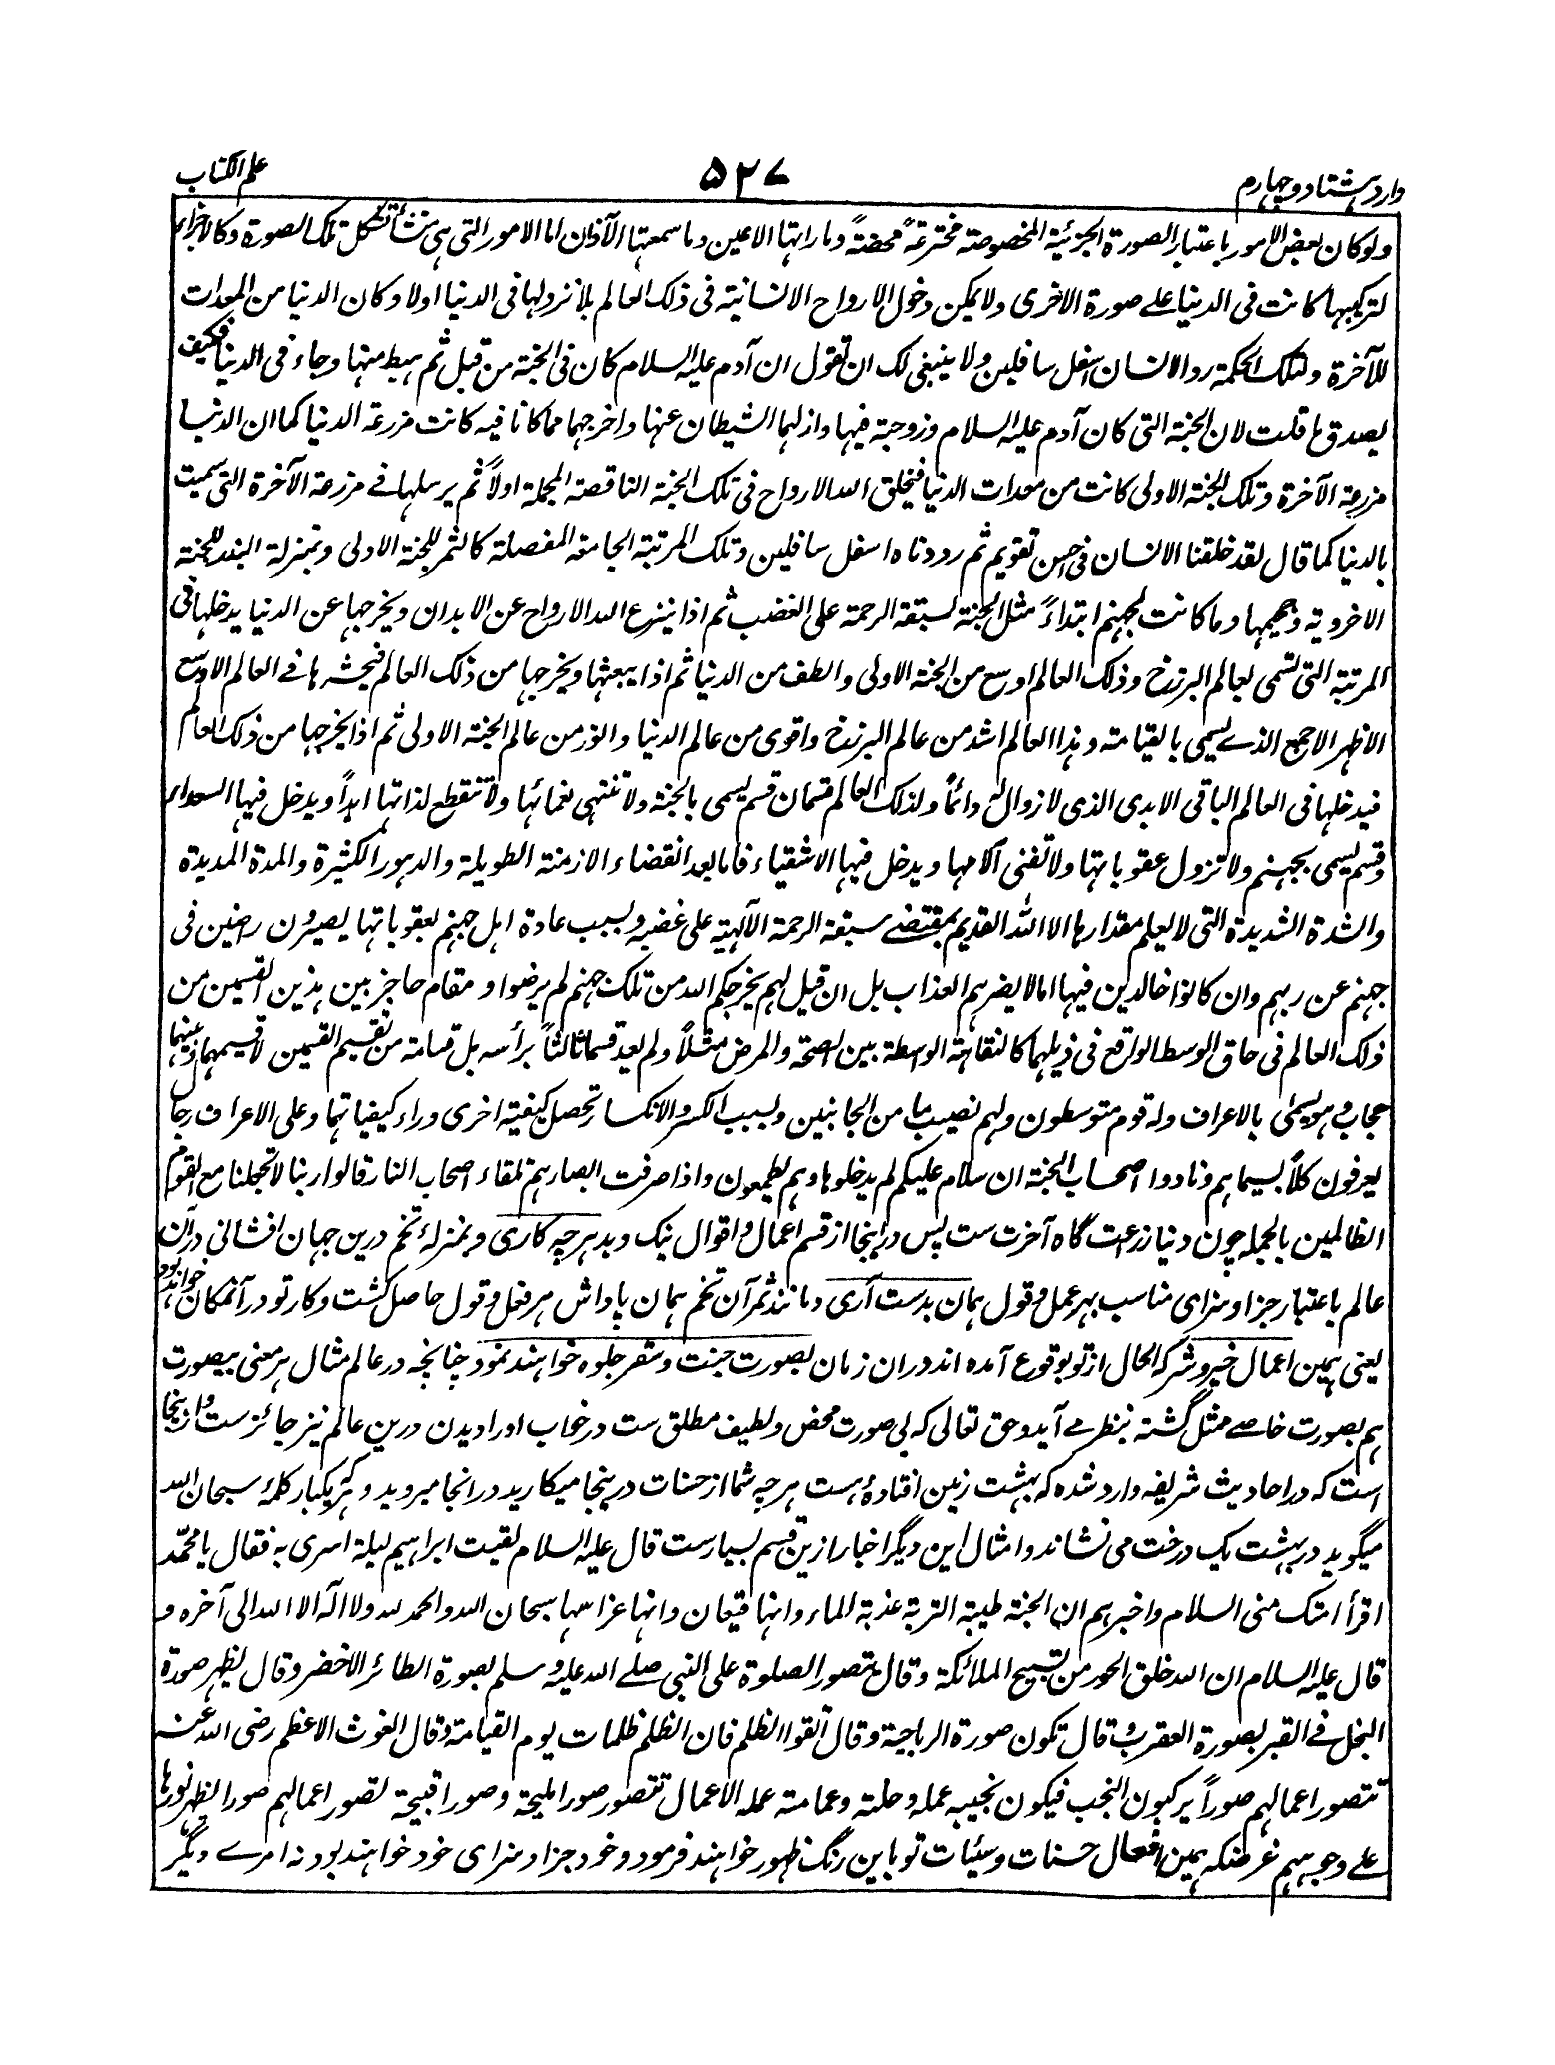 وارد ہشتاد و چہارم ۵۲۷ علم الکتاب
ولو کان بعض الامور باعتبار الصورة الجزئیة المخصوصة مخترعةً محضةً وما راتها الاعین وما سمعتها الآذان اما الامور التی ہی منشأ تشکل تلک الصورة وکالاجزاء
لترکیبہا کانت فی الدنیا علے صورة الاخری ولا یمکن دخول الارواح الانسانیة فی ذلک العالم بلا نزولہا فی الدنیا اولا وکان الدنیا من المعدات
للآخرة ولتلک الحکمة رد الانسان اسفل سافلین ولا ینبغی لک ان تقول ان آدم علیہ السلام کان فی الجنة من قبل ثم ہبط منہا وجاء فی الدنیا فکیف
یصدق ما قلت لان الجنة التی کان آدم علیہ السلام وزوجتہ فیہا وازلہما الشیطان عنہا واخرجہما مما کانا فیہ کانت مزرعة الدنیا کما ان الدنیا
مزرعة الآخرة وتلک الجنة الاولی کانت من معدات الدنیا فیخلق اللہ الارواح فی تلک الجنة الناقصة المجملة اولاً ثم یرسلہا فے مزرعة الآخرة التی سمیت
بالدنیا کما قال لقد خلقنا الانسان فی احسن تقویم ثم رددناه اسفل سافلین وتلک المرتبة الجامعة المفصلة کالثمر للجنة الاولی وبمنزلة البذر للجنة
الاخرویة وجحیمہا وما کانت لجہنم ابتداءً مثل الجنة لسبقة الرحمة علی الغضب ثم اذا ینزع اللہ الارواح عن الابدان ویخرجہا عن الدنیا یدخلہا فی
المرتبة التی تسمی بعالم البرزخ وذلک العالم اوسع من الجنة الاولی والطف من الدنیا ثم اذا یبعثہا ویخرجہا من ذلک العالم فیحشرہا فے العالم الاوسع
الاظہر الاجمع الذے یسمی بالقیامة وہذا العالم اشد من عالم البرزخ واقوی من عالم الدنیا وانور من عالم الجنة الاولی ثم اذا یخرجہا من ذلک العالم
فیدخلہا فی العالم الباقی الابدی الذی لا زوال لہ دائماً ولذلک العالم قسمان قسم یسمی بالجنة ولا تنتہی نعمائہا ولا تنقطع لذاتہا ابداً ویدخل فیہا السعداء
وقسم یسمی بجہنم ولا تزول عقوباتہا ولا تفنی آلامہا ویدخل فیہا الاشقیاء فاما بعد انقضاء الازمنة الطویلة والدہور الکثیرة والمدة المدیدة
والشدة الشدیدة التی لا یعلم مقدارہا الا اللہ القدیم بمقتضے سبقة الرحمة الآلہیة علی غضبہ وبسبب عادة اہل جہنم بعقوباتہا یصیرون راضین فی
جہنم عن ربہم وان کانوا خالدین فیہا اما لا یضرہم العذاب بل ان قیل لہم یخرجکم اللہ من تلک جہنم لم یرضوا و مقام حاجز بین ہذین القسمین من
ذلک العالم فی حاق الوسط الواقع فی ذیلہما کالنقاہة الواسطة بین الصحة والمرض مثلاً ولم یعد قسماً ثالثاً برأسہ بل قسامة من تقسیم القسمین لا قسیمہما وبینہما
حجاب وہو یسمیٰ بالاعراف ولہ قوم متوسطون ولہم نصیب ما من الجانبین وبسبب الکسر والانکسار تحصل کیفیة اخری وراء کیفیاتہا وعلی الاعراف رجال
یعرفون کلاً بسیماہم ونادوا اصحاب الجنة ان سلام علیکم لم یدخلوہا وہم یطمعون واذا صرفت ابصارہم تلقاء اصحاب النار قالوا ربنا لا تجعلنا مع القوم
الظالمین بالجملہ چون دنیا زراعت گاہ آخرت ست پس در اینجا از قسم اعمال و اقوال نیک و بد ہر چہ کاری و بمنزلہٴ تخم درین جہان افشانی در آن
عالم باعتبار جزا و سزای مناسب ہر عمل و قول ہمان بدست آری و مانند ثمر آن تخم ہمان پاداش ہر فعل و قول حاصل کشت و کار تو در آنمکان خواہد بود
یعنی ہمین اعمال خیر و شر کہ الحال از تو بوقوع آمدہ اند در ان زمان بصورت جنت و سقر جلوہ خواہند نمود چنانچہ در عالم مثال ہر معنی بیصورت
ہم بصورت خاصے ممثل گشتہ بنظر مے آید و حق تعالی کہ بی صورت محض و لطیف مطلق ست در خواب او را دیدن درین عالم نیز جائز ست و از ینجا
است کہ در احادیث شریفہ وارد شدہ کہ بہشت زمین افتادہٴ ہست ہر چہ شما از حسنات درینجا میکارید در آنجا میروید و ہر کہ یکبار کلمہٴ سبحان اللہ
میگوید در بہشت یک درخت می نشاند و امثال این دیگر اخبار ازین قسم بسیارست قال علیہ السلام لقیت ابراہیم لیلة اسری بہ فقال یا محمّد
اقرأ امتک منی السلام واخبرہم ان الجنة طیبة التربة عذبة الماء وانہا قیعان وانہا غراسہا سبحان اللہ والحمد للہ ولا الٓہ الا اللہ الی آخرہ و
قال علیہ السلام ان اللہ خلق الحور من تسبیح الملائکة وقال یتصور الصلوة علی النبی صلے اللہ علیہ وسلم بصورة الطائر الاخضر وقال یظہر صورة
البخل فے القبر بصورة العقرب وقال تکون صورة الرباجیة وقال اتقوا الظلم فان الظلم ظلمات یوم القیامة وقال الغوث الاعظم رضی اللہ عنہ
تتصور اعمالہم صوراً یرکبون النجب فیکون نجیبہ عملہ وحلتہ وعمامتہ عملہ الاعمال تتصور صورا ملیحة وصورا قبیحة تصور اعمالہم صورا یظہر نورہا
علے وجوہہم غرضکہ ہمین افعال حسنات و سیئات تو باین رنگ ظہور خواہند فرمود و خود جزا و سزای خود خواہند بود نہ امرے دیگر